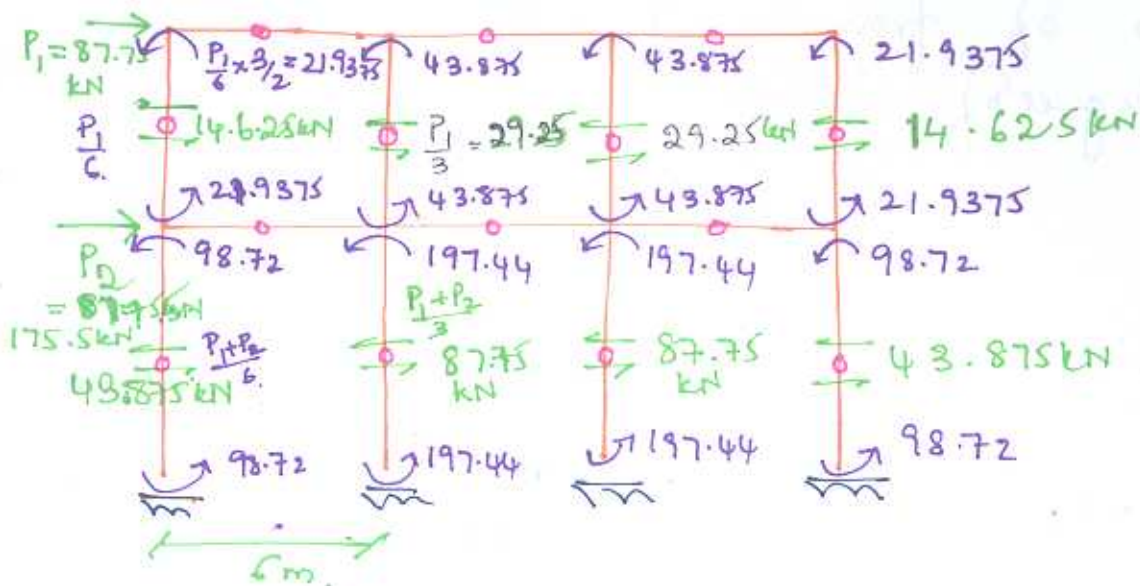 P₁ = 87.75 kN
P₁/6 × 3/2 = 21.9375
43.875
43.875
21.9375
P₁/6
14.625kN
P₁/3 = 29.25
29.25kN
14.625kN
21.9375
43.875
43.875
21.9375
P₂
175.5kN
98.72
197.44
197.44
98.72
P₁+P₂/6
43.875kN
P₁+P₂/3
87.75 kN
87.75 kN
43.875kN
98.72
197.44
197.44
98.72
6m